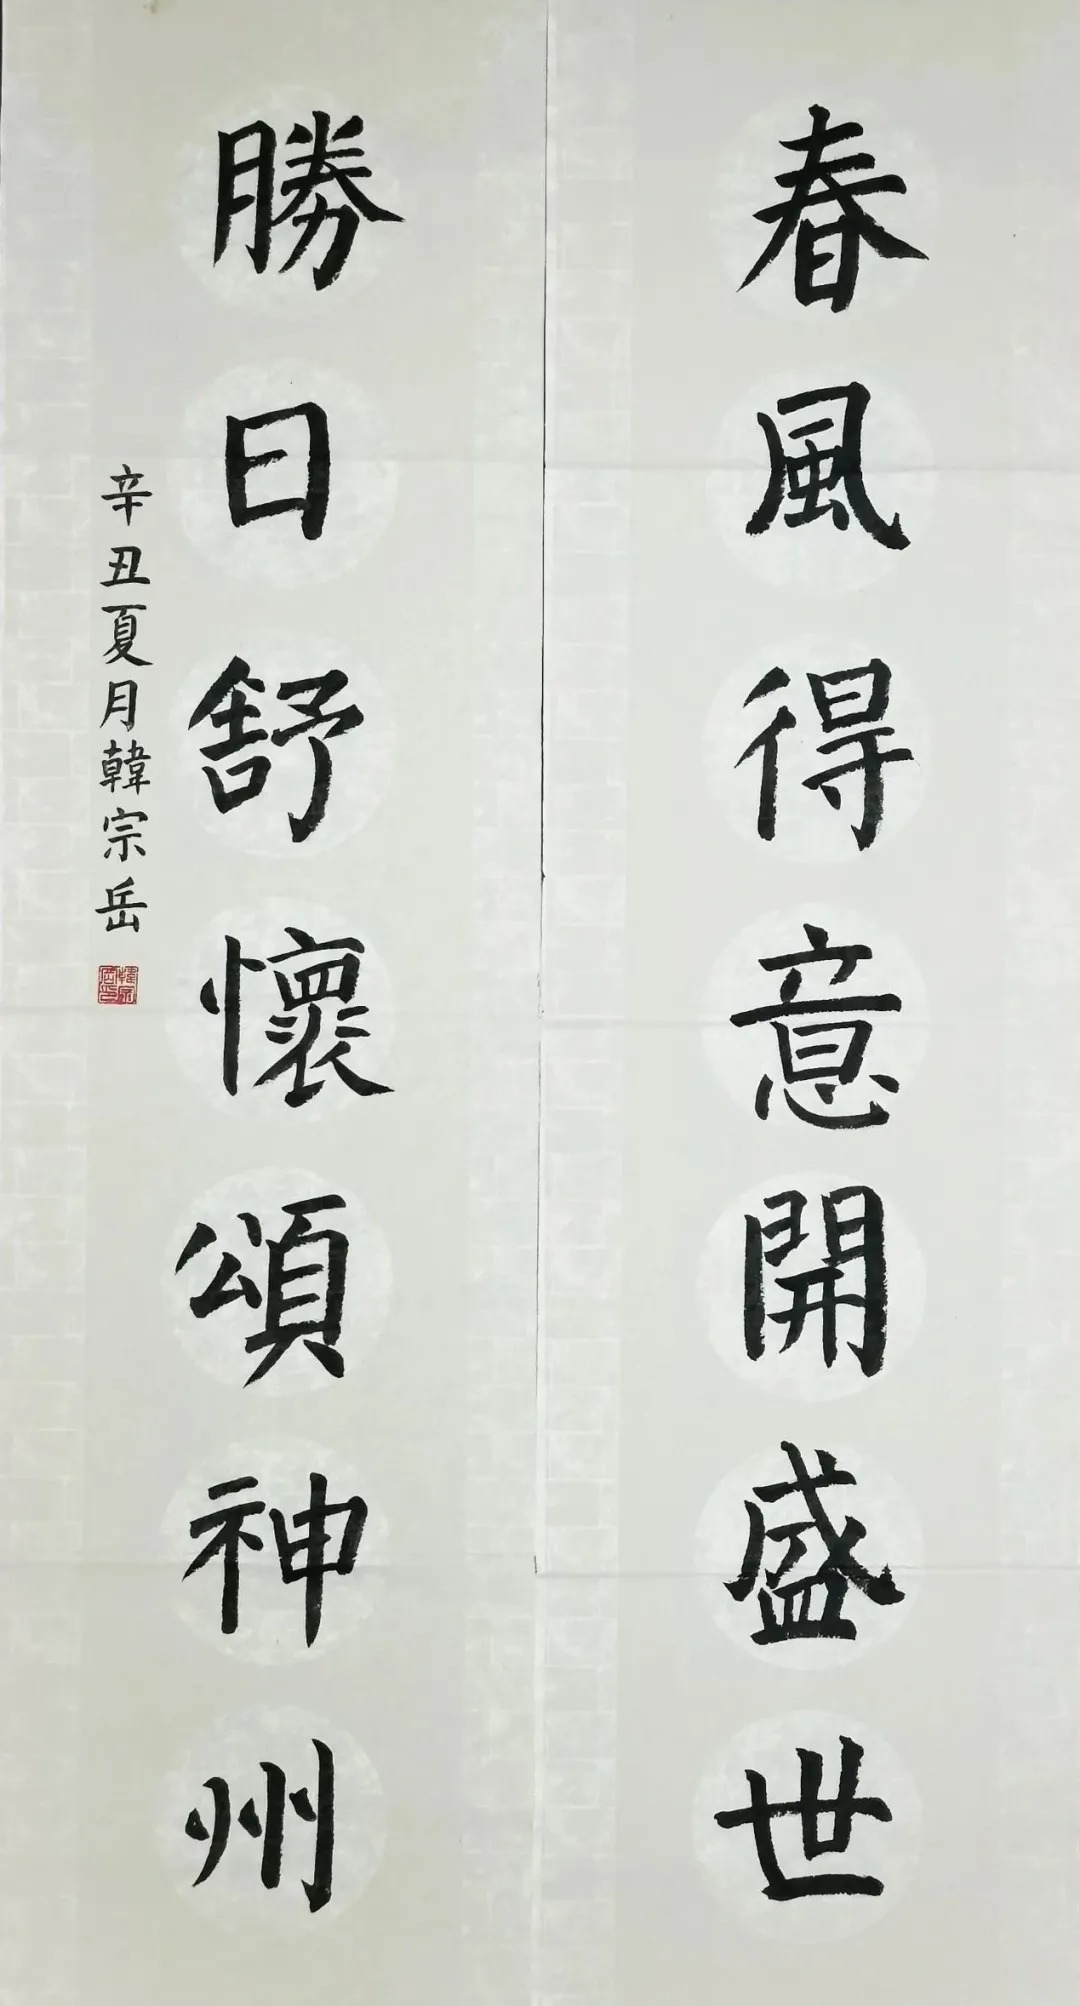 春風得意開盛世
勝日舒懷頌神州
辛丑夏月韓宗岳